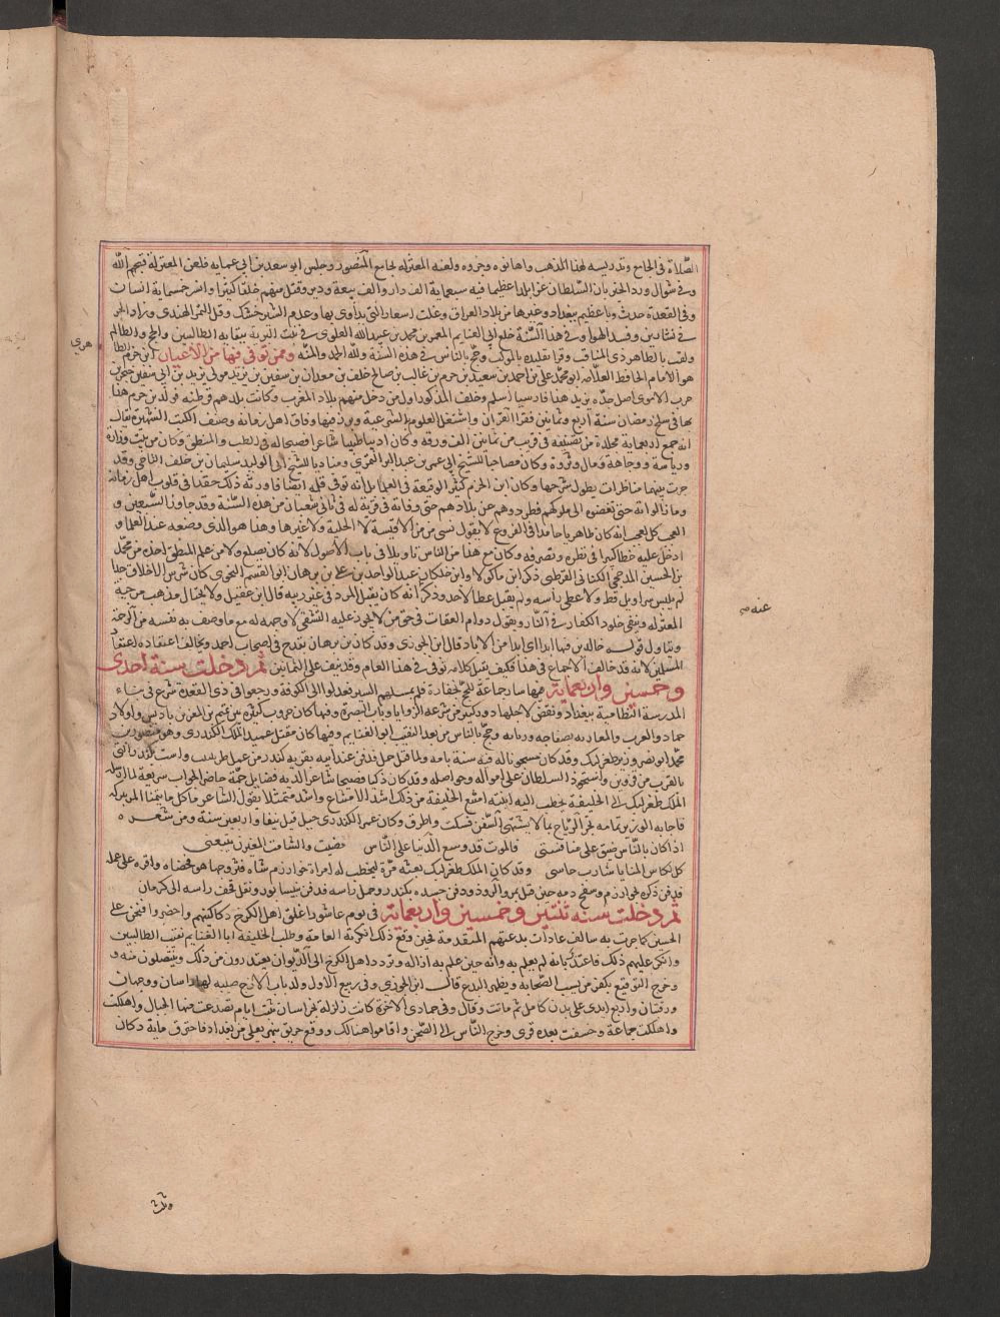 الصلاة في الجامع وتدريسه لهذا المذهب واهانوه وجروه ولعنه المعتزله بجامع المنصور وجلس ابو سعد بن ابي عمايه فلعن المعتزلة قبحهم الله
وفي شوال ورد الخبر بان السلطان غزا بلدا عظيما فيه سبعماية الف دار والف بيعة ودير وقتل منهم خلقا كثيرا واسر خمسماية انسان
وفي القعدة حدث وباء عظيم ببغداد وغيرها من بلاد العراق وغلت اسعار الادوية التي يداوى بها وعدم الشيرخشك وقل التمر الهندي وزاد الحر
في تشارين وفسد الهواء وفي هذا السنة خلع ابي الغنايم المعمر بن محمد بن عبيد الله العلوي في بيت النوبة بنقابة الطالبين والحج والمظالم
ولقب بالطاهر ذي المناقب وقرا تقليده بالموكب وحج بالناس في هذه السنة ولله الحمد والمنه وممن توفي فيها من الاعيان ابن حزم الظا
هري
هو الامام الحافظ العلامه ابو محمد علي بن احمد بن سعيد بن حزم بن غالب بن صالح بن خلف بن معدان بن سفين بن يزيد مولى يزيد بن ابي سفين صخر بن
حرب الاموي اصل جده يزيد هذا فارسيا اسلم وخلف المذكور اول من دخل منهم بلاد المغرب وكانت بلادهم قرطبه فولد بن حزم هذا
بها في سلخ رمضان سنة اربع وثمانين فقرا القران واشتغل بالعلوم الشرعية وبرز فيها وفاق اهل زمانه وصنف الكتب الشهيرة يقال
انه جمع اربعماية مجلدة من تصنيفه في قريب من ثمانين الف ورقه وكان اديبا طبيبا شاعرا فصيحا له في الطب والمنطق وكان من بيت وزارة
ورياسة ووجاهة ومال وثروة وكان مصاحبا للشيخ ابي عمر بن عبد البر النمري ومناويا للشيخ ابي الوليد سليمان بن خلف الباجي وقد
جرت بينهما مناظرات يطول شرحها وكان ابن الحزم كثير الوقيعة في العلما بلسانه وقلمه ايضا فاورثه ذلك حقدا في قلوب اهل زمانه
وما زالوا به حتى بغضوه الى ملوكهم فطردوهم عن بلادهم حتى وفاته في قرية له في ثاني شعبان من هذه السنة وقد جاوز السبعين و
العجب كل العجب انه كان ظاهريا حامدا في الفروع لا يقول بشي من الاقيسة لا الجلية ولا غيرها وهذا هو الذي وضعه عند العلما و
ادخل عليه خطا كبيرا في نظره وتصرفه وكان مع هذا من الناس تاويلا في باب الاصول لانه كان تضلع ولا من علم المنطق اخذه من محمد
بن الحسين المذحجي الكناني القرطبي ذكره ابن ماكولا وابن خلكان عبد الواحد بن علي بن برهان ابو القسم النحوي كان شرس الاخلاق جدا
لم يلبس سراويل قط ولا غطى راسه ولم يقبل عطا لاحد وذكر انه كان يقبل المرد في غير ريبه قال ابن عقيل ولا يختال مذهب مرجية
عنه
المعتزله وينفي خلود الكفار في النار ويقول دوام العقاب في حق من لا يجوز عليه التشفي لا وجه له مع ما وصف به نفسه من الرحمة
ويتاول قوله خالدين فيها ابدا اي ابدا من الاباد قال ابن الجوزي وقد كان بن برهان يقدح في اصحاب احمد ويخالف اعتقاده اعتقاد
المسلمين لانه قد خالف الاجماع في هذا فكيف يقبل كلامه توفي في هذا العام وقد نيف على الثمانين ثم دخلت سنة احدى
وخمسين واربعماية فيها سار جماعة للحج بخفارة فلم يتهيا لهم السير فعدلوا الى الكوفة ورجعوا وفي ذي القعدة شرع في بناء
المدرسة النظامية ببغداد ونقض لاجلها دور كثير من مشرعه الزوايا وباب البصرة وفيها كان حروب كثيره بين تميم بن المعز بن باديس واولاد
حماد والعرب والمعاربه بصنهاجه وزناته وحج بالناس من بغداد النقيب ابو الغنايم وفيها كان مقتل عميد الملك الكندري وهو منصور بن
محمد ابو نصر وزير طغرلبك وقد كان مسجونا له فيه سنة تامه ولما قتل حمل فدفن عند ابيه بقرية كندر من عمل طريثيث وليست كندر التي
بالقرب من قزوين واستحوذ السلطان على امواله وحواصله وقد كان ذكيا فصيحا شاعرا لديه فضايل جمة حاضر الجواب سريعه لما ارسله
الملك طغرلبك الى الخليفة يخطب اليه ابنته امتنع الخليفة من ذلك اشد الامتناع وانشد متمثلا بقول الشاعر ما كل ما يتمنا المرء يدركه
فاجابه الوزير تمامه تجري الرياح بما لا يشتهي السفن فسكت واطرق وكان عمر الكندري حين قتل نيفا واربعين سنة ومن شعره
اذا كان بالناس ضيق على مناقستي فالموت قد وسع الدنيا على الناس مضيت والشامت المغبون يتبعني
كل لكاس المنايا شارب حاسي وقد كان الملك طغرلبك بعثه مرة ليخطب له امراة خوارزم شاه فتزوجها هو فخصاه واقره على عمله
فدفن ذكره بخوارزم وسفح دمه حين قتل بمرو الروذ ودفن جسده بكندر وحمل راسه فدفن بنيسابور ونقل قحف راسه الى كرمان
ثم دخلت سنة ثنتين وخمسين واربعماية في يوم عاشورا اغلق اهل الكرخ دكاكينهم واحضروا نسا ينحن على
الحسين كما جرت به سالف عادات بدعتهم المتقدمة فحين وقع ذلك انكرته العامة وطلب الخليفة ابا الغنايم نقيب الطالبيين
وانكر عليهم ذلك فاعتذر بانه لم يعلم به وانه حين علم به ازاله وتردد اهل الكرخ الى الديوان يعتذرون من ذلك ويتنصلون منه و
وخرج التوقيع بكفر من يسب الصحابه ويظهر البدع قال ابن الجوزي وفي ربيع الاول ولد بباب الازج صبية لها راسان ووجهان
ورقبتان واربع ايدي على بدن كامل ثم ماتت وقال وفي جمادى الاخرة كانت زلزلة بخراسان لبثت ايام تصدعت منها الجبال واهلكت
واهلكت جماعة وخسفت بعده قرى وخرج الناس الى الصحرا واقاموا هنالك ووقع حريق بنهر يعلى من بغداد فاحترق ماية دكان